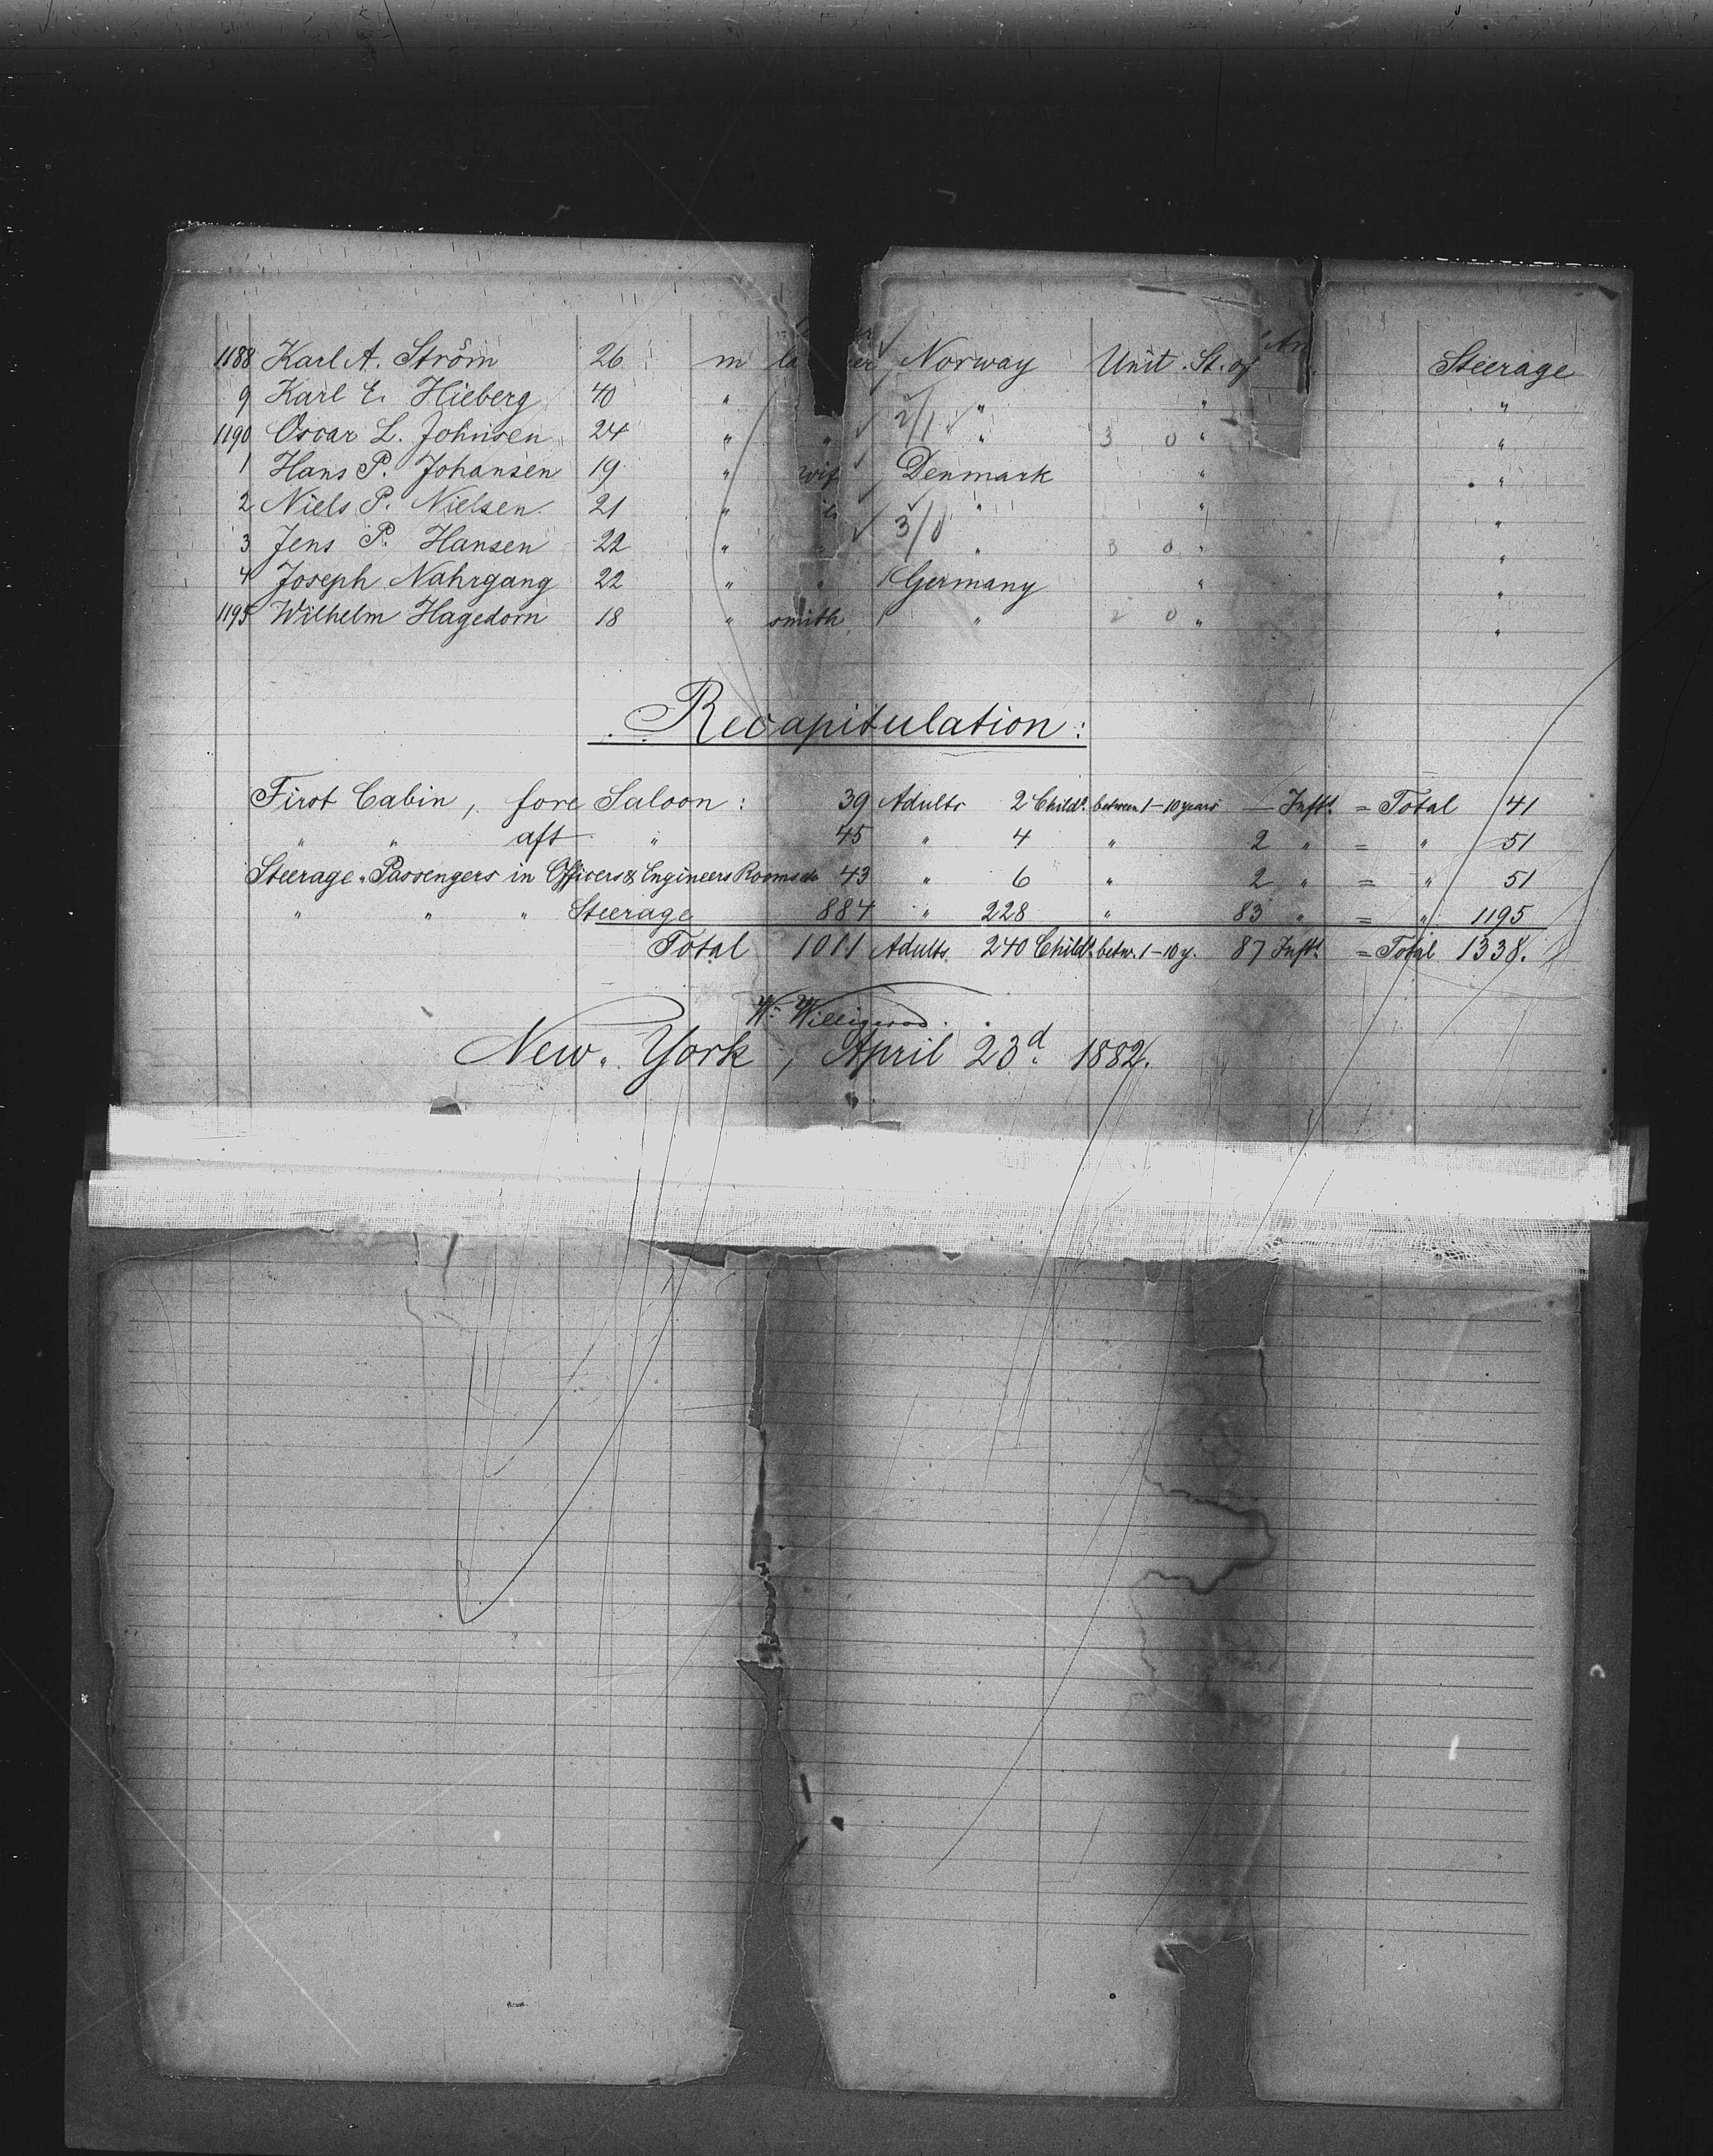 1188 Karl A. Ström 26 m Norway Unit. St. of Am. Steerage
9 Karl E. Hieberg 40 " 2/1 " " "
1190 Oscar L. Johnsen 24 " " " 3 0 " "
1 Hans P. Johansen 19 " Denmark " "
2 Niels P. Nielsen 21 " " " " "
3 Jens P. Hansen 22 " " 3/0 " 3 0 " "
4 Joseph Nahrgang 22 " " Germany " "
1195 Wilhelm Hagedorn 18 " smith " 2 0 " "
Recapitulation:
First Cabin, fore Saloon: 39 Adults 2 Childr. between 1-10 years — Inft. = Total 41
" " aft " 45 " 4 " 2 " = " 51
Steerage Passengers in Officers & Engineers Rooms 43 " 6 " 2 " = " 51
" " " Steerage 884 " 228 " 83 " = " 1195
Total 1011 Adults 240 Childr. betw. 1-10 y. 87 Inft. = Total 1338.
Wm. Willigerod.
New York, April 23d 1882.